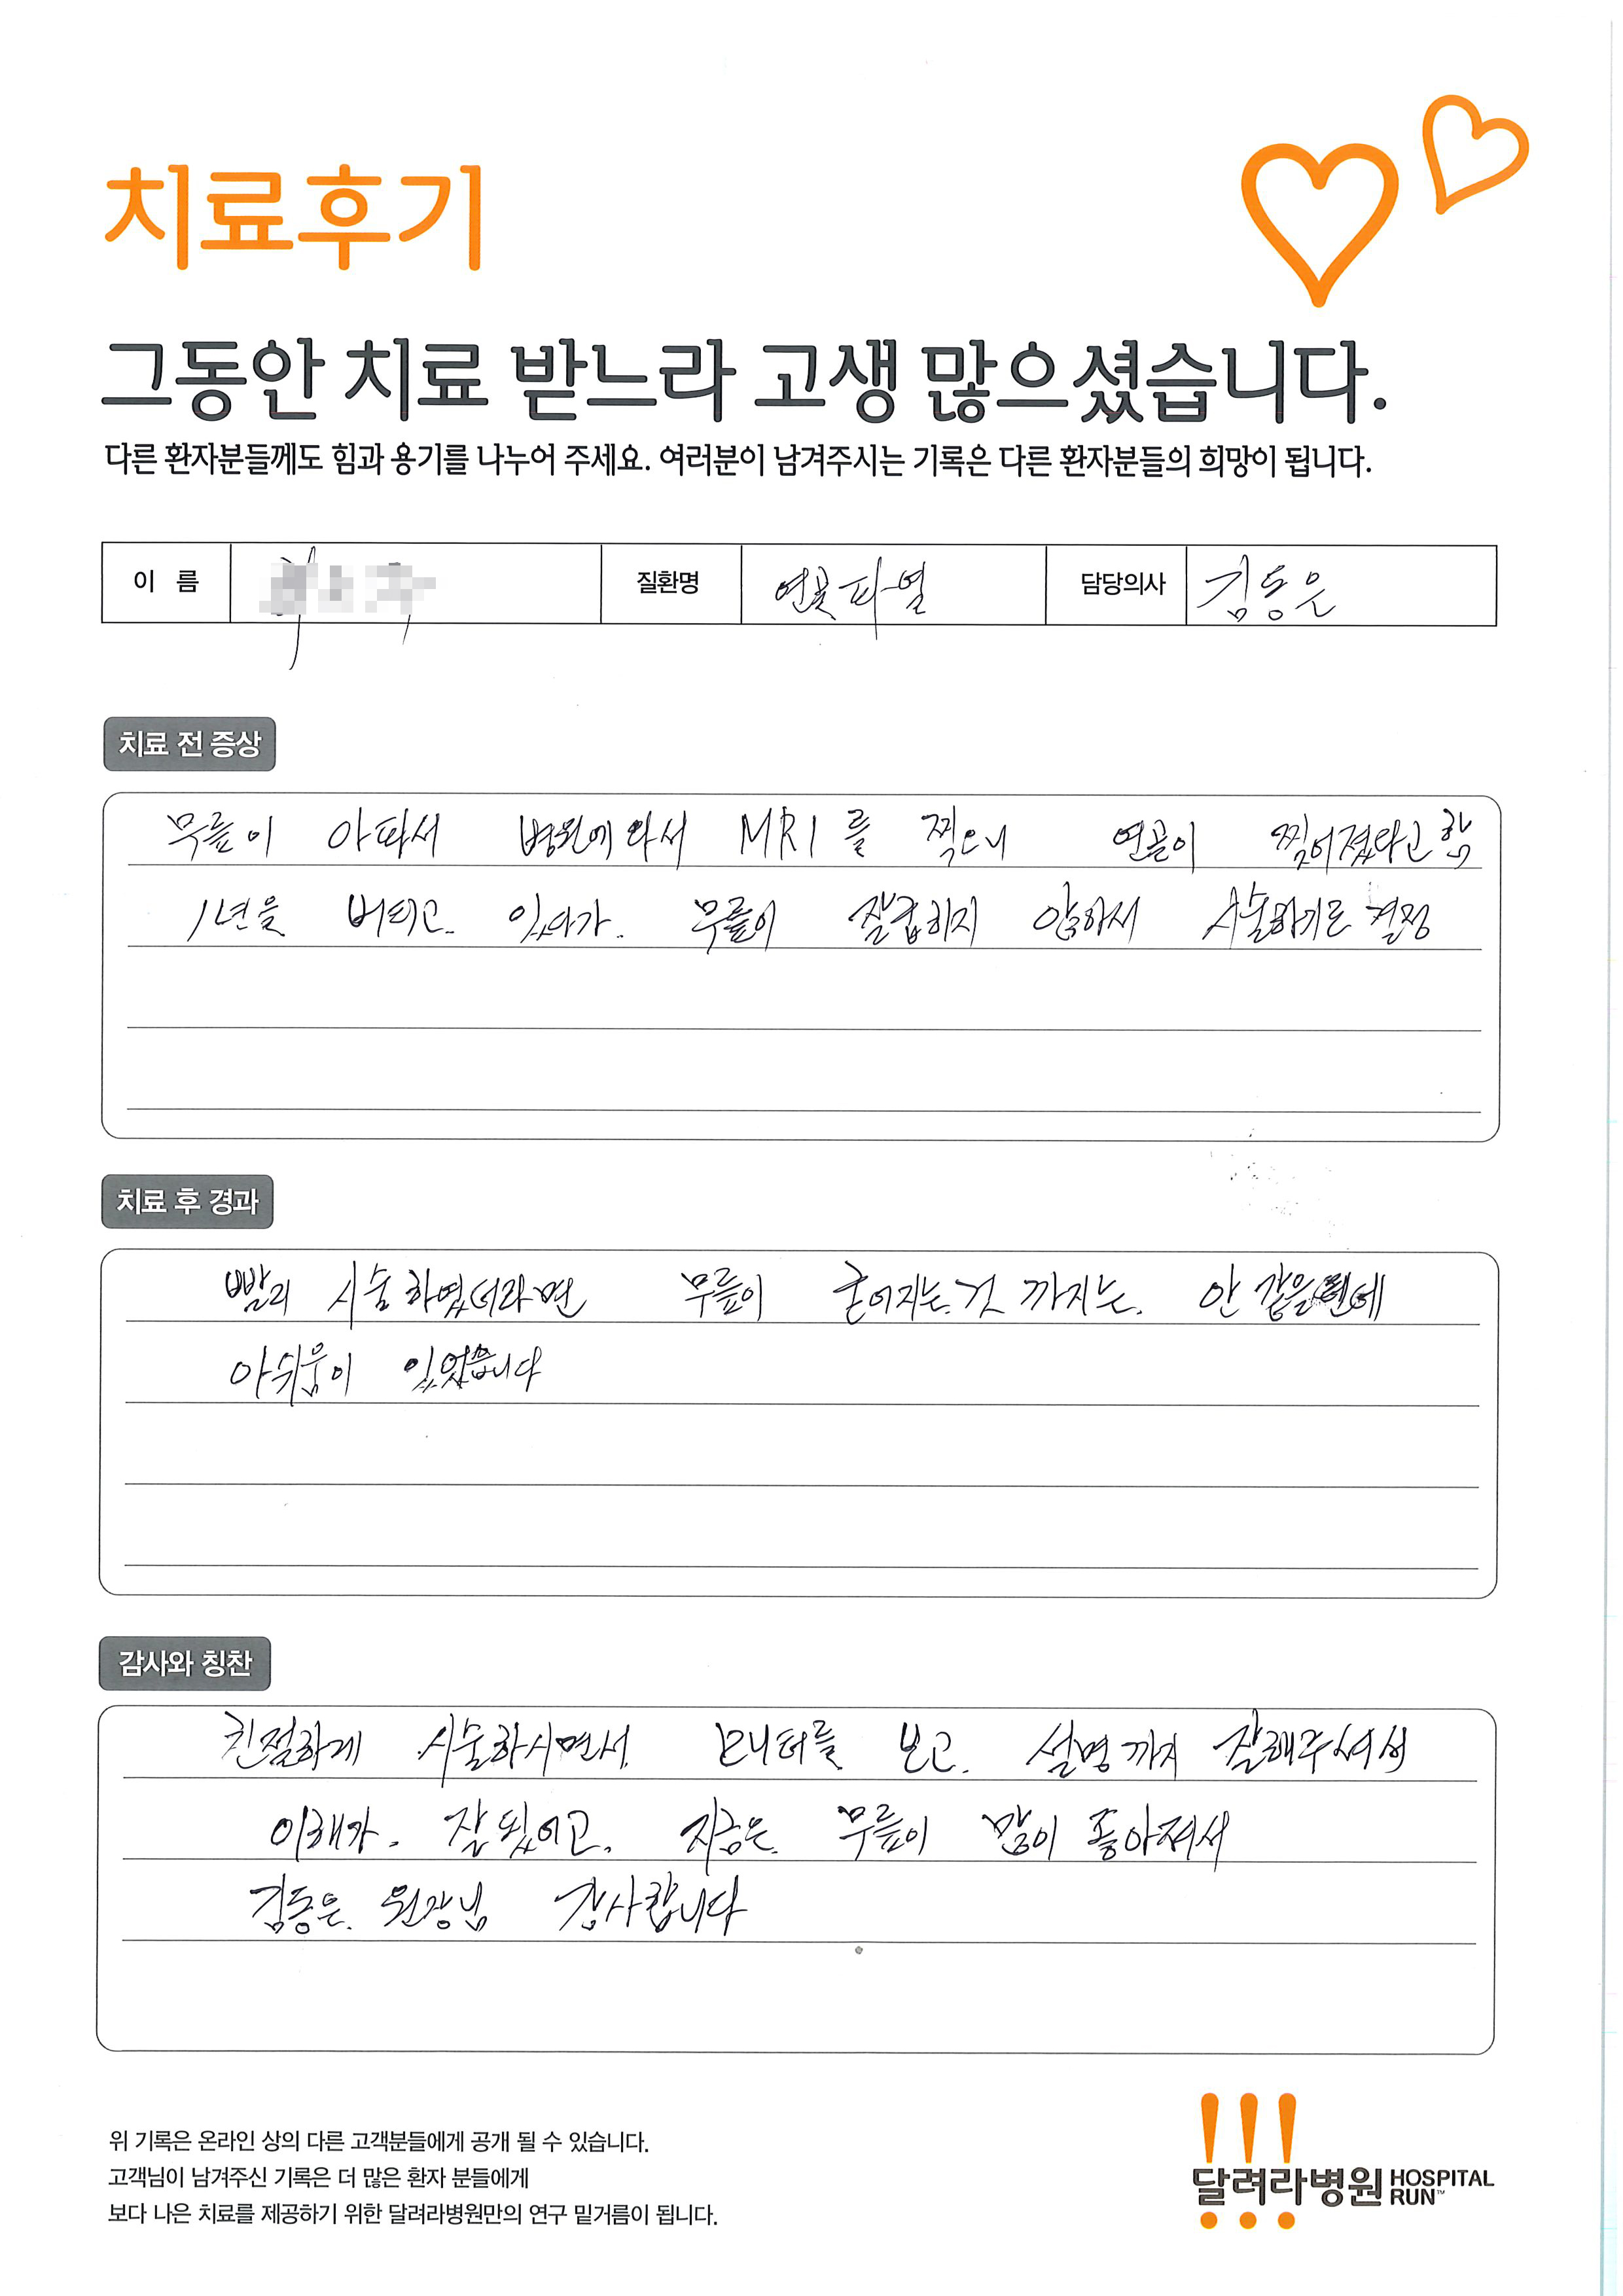 치료후기
그동안 치료 받느라 고생 많으셨습니다.
다른 환자분들께도 힘과 용기를 나누어 주세요. 여러분이 남겨주시는 기록은 다른 환자분들의 희망이 됩니다.
이 름 질환명 연골파열 담당의사 김동은
치료 전 증상
무릎이 아파서 병원에 와서 MRI를 찍으니 연골이 찢어졌다고 함
1년을 버티고. 있다가. 무릎이 잘굽히지 않아서 시술하기로 결정
치료 후 경과
빨리 시술하였더라면 무릎이 굳어지는.것 까지는. 안 갔을텐데
아쉬움이 있었습니다
감사와 칭찬
친절하게 시술하시면서. 모니터를 보고. 설명까지 잘해주셔서
이해가. 잘됬었고. 지금은. 무릎이 많이 좋아져서
김동은. 원장님 감사합니다
위 기록은 온라인 상의 다른 고객분들에게 공개 될 수 있습니다.
고객님이 남겨주신 기록은 더 많은 환자 분들에게
보다 나은 치료를 제공하기 위한 달려라병원만의 연구 밑거름이 됩니다.
달려라병원 HOSPITAL RUN™